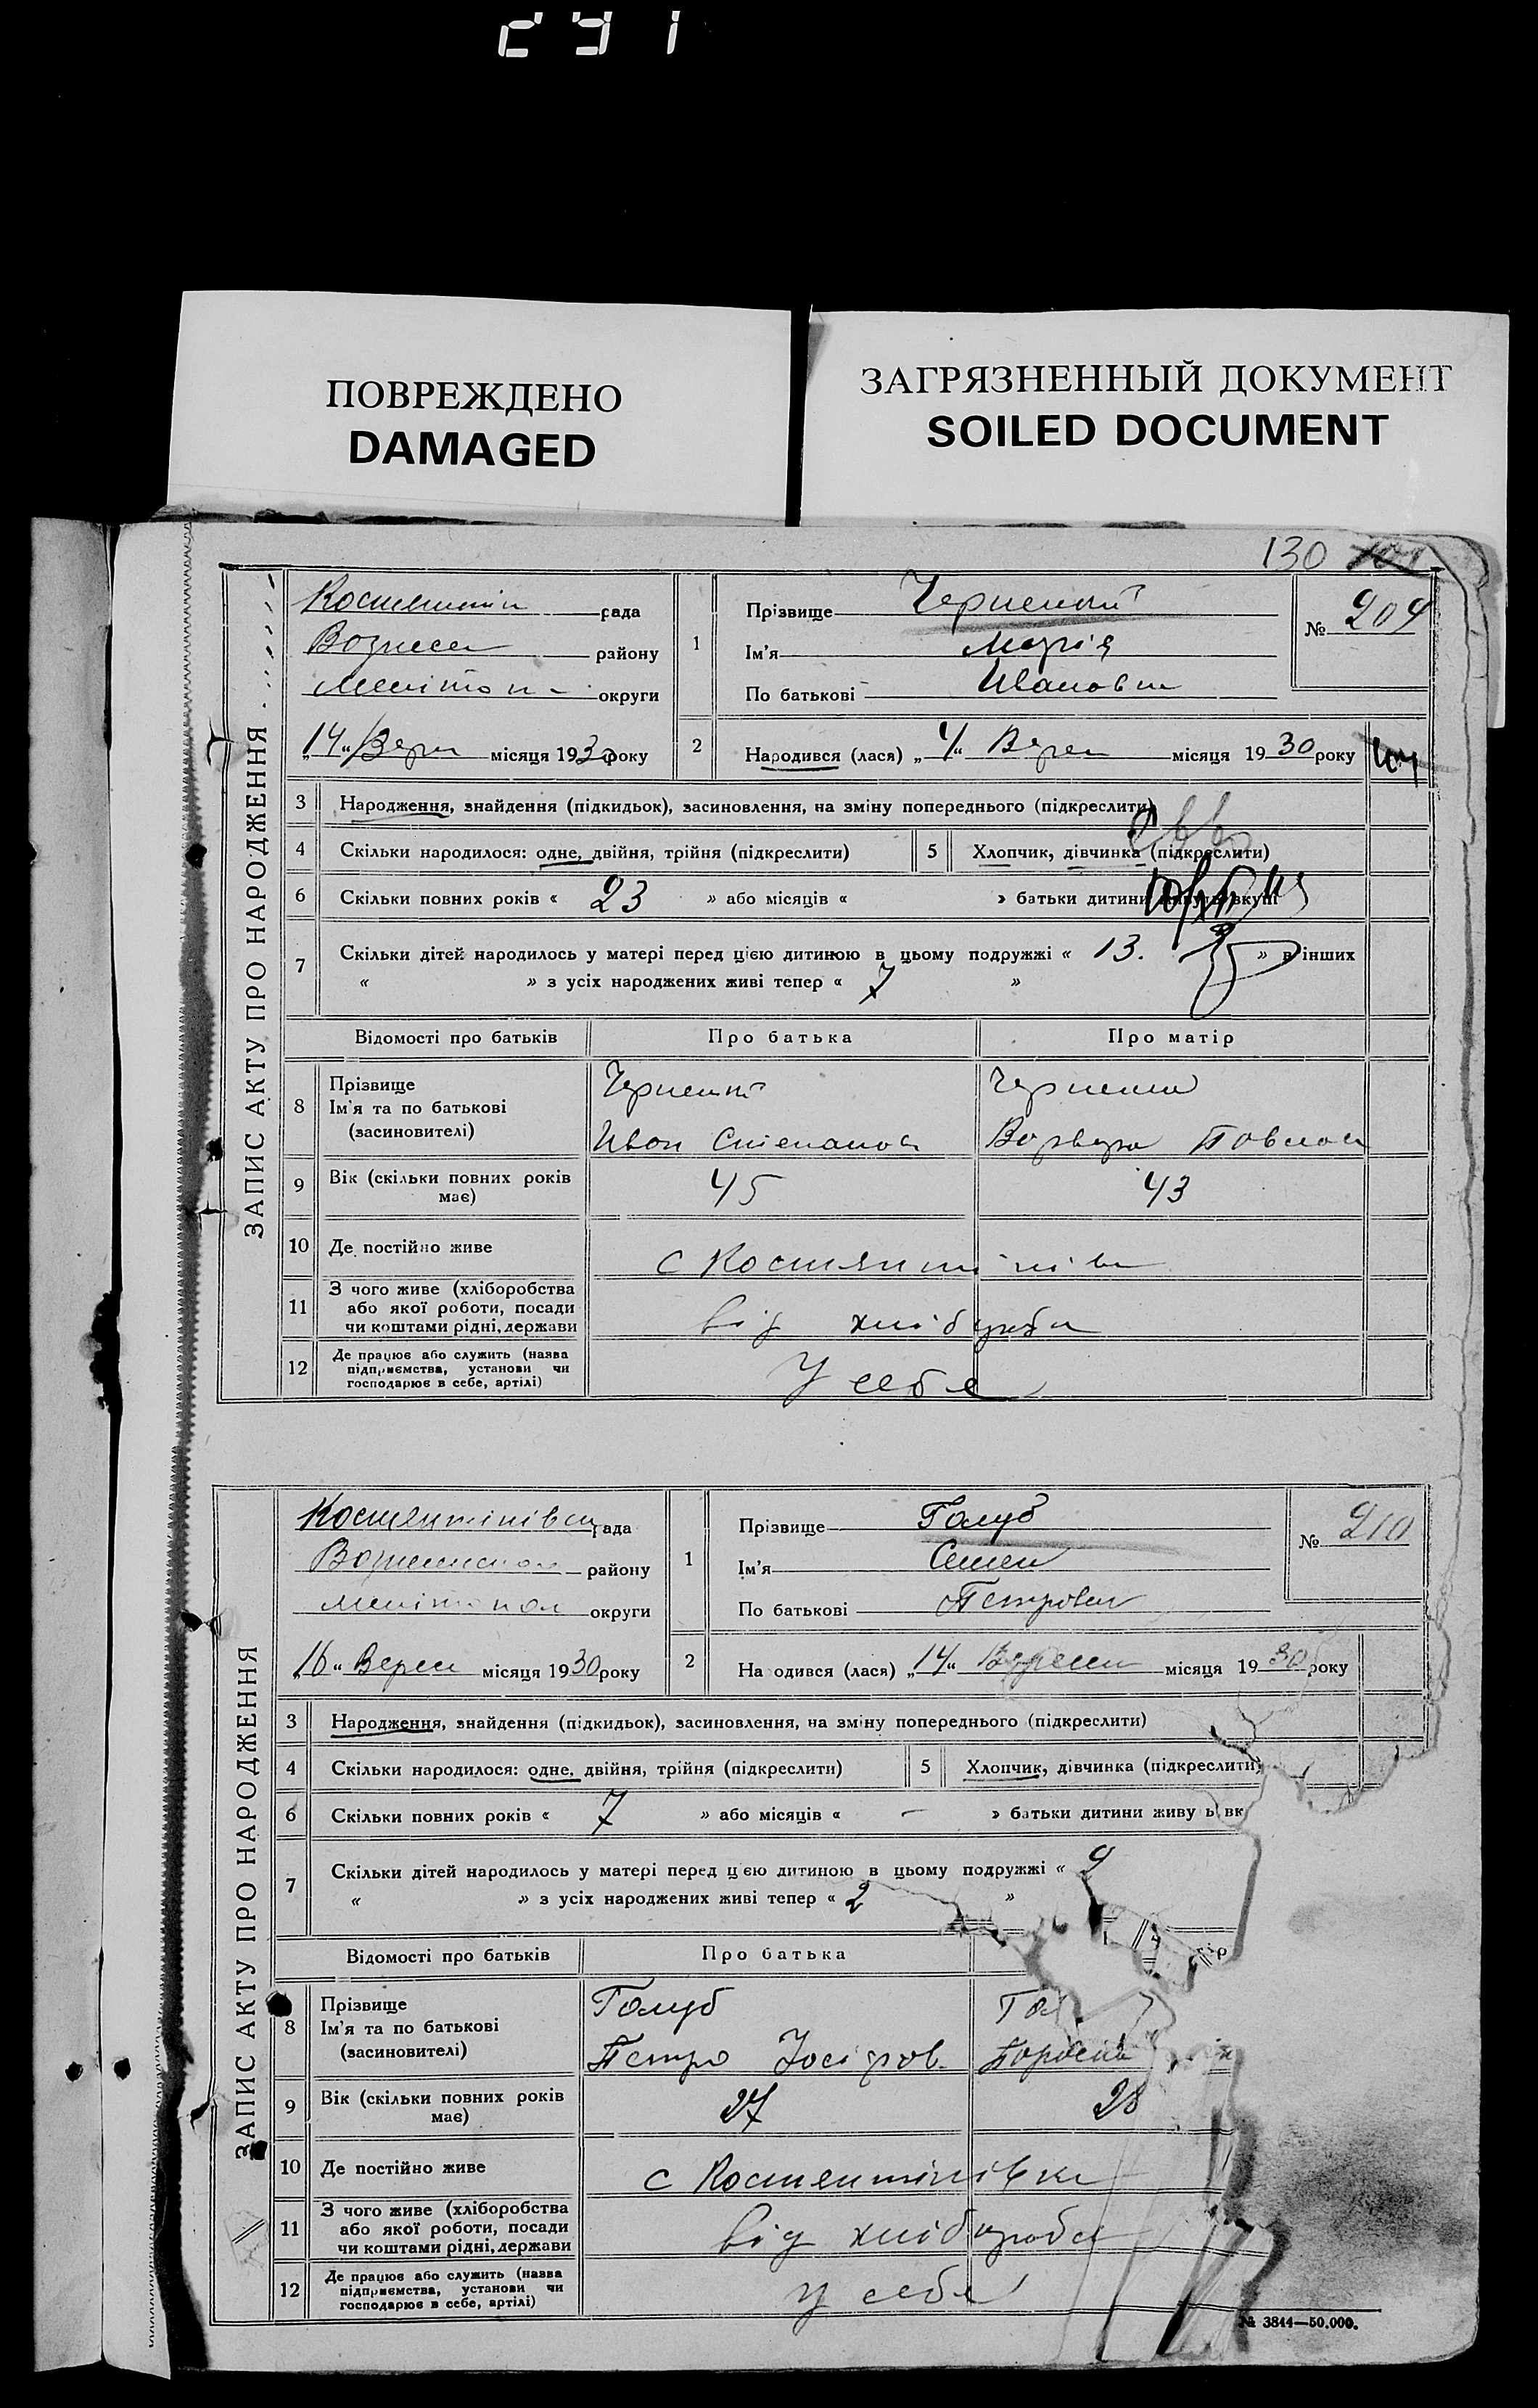 291
ПОВРЕЖДЕНО
DAMAGED
ЗАГРЯЗНЕННЫЙ ДОКУМЕНТ
SOILED DOCUMENT
130
ЗАПИС АКТУ ПРО НАРОДЖЕННЯ
рада
району
округи
„14“ місяця 1930 року
1
Прізвище
Ім'я Марія
По батькові
№ 209
2
Народився (лася) „4“ Верес місяця 1930 року
3 Народження, знайдення (підкидьок), засиновлення, на зміну попереднього (підкреслити)
4 Скільки народилося: одне, двійня, трійня (підкреслити)
5 Хлопчик, дівчинка (підкреслити)
6 Скільки повних років « 23 » або місяців « » батьки дитини живуть вкупі
7 Скільки дітей народилось у матері перед цією дитиною в цьому подружжі « 13. » в інших
« » з усіх народжених живі тепер « 7 »
Відомості про батьків
Про батька
Про матір
8 Прізвище
Ім'я та по батькові
(засновителі)
Иван Степанов
Варвара Павлов
9 Вік (скільки повних років має)
45
43
10 Де постійно живе
с Костянтинівка
11 З чого живе (хліборобства або якої роботи, посади чи коштами рідні, держави
від хліборобс
12 Де працює або служить (назва підприємства, установи чи господарює в себе, артілі)
У себе
ЗАПИС АКТУ ПРО НАРОДЖЕННЯ
Костянтинівка рада
району
Мелітопол округи
„16“ Верес місяця 1930 року
1
Прізвище Голуб
Ім'я Семен
По батькові Петрович
№ 210
2
На одився (лася) „14“ Вересн місяця 1930 року
3 Народження, знайдення (підкидьок), засиновлення, на зміну попереднього (підкреслити)
4 Скільки народилося: одне, двійня, трійня (підкреслити)
5 Хлопчик, дівчинка (підкреслити)
6 Скільки повних років « 7 » або місяців « — » батьки дитини живу ь вк
7 Скільки дітей народилось у матері перед цією дитиною в цьому подружжі « 2
« » з усіх народжених живі тепер « 2 »
Відомості про батьків
Про батька
ір
8 Прізвище
Ім'я та по батькові
(засновителі)
Голуб
Петро Йосипов.
Гол
9 Вік (скільки повних років має)
27
28
10 Де постійно живе
с Костянтинівка
11 З чого живе (хліборобства або якої роботи, посади чи коштами рідні, держави
від хліборобс
12 Де працює або служить (назва підприємства, установи чи господарює в себе, артілі)
у себе
№ 3844—50.000.